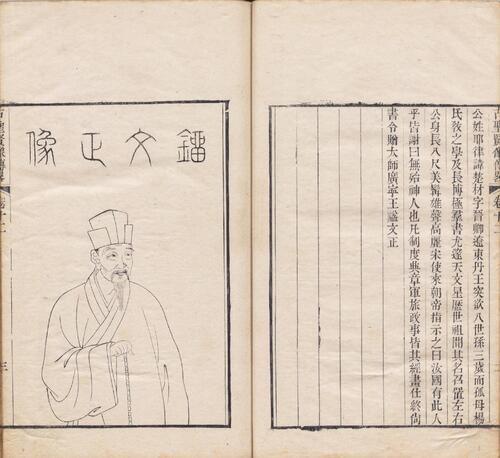 古聖賢像傳略 卷十二
公姓耶律諱楚材字晉卿遼東丹王突欲八世孫三歲而孤母楊
氏敎之學及長博極羣書尤邃天文星歷世祖聞其名召置左右
公身長八尺美髯雄聲高麗宋使來朝帝指示之曰汝國有此人
乎皆謝曰無殆神人也凡制度典章軍旅政事皆其經畫仕終尙
書令贈太師廣寧王謚文正
鎦文正像
古聖賢像傳略 卷十二 三